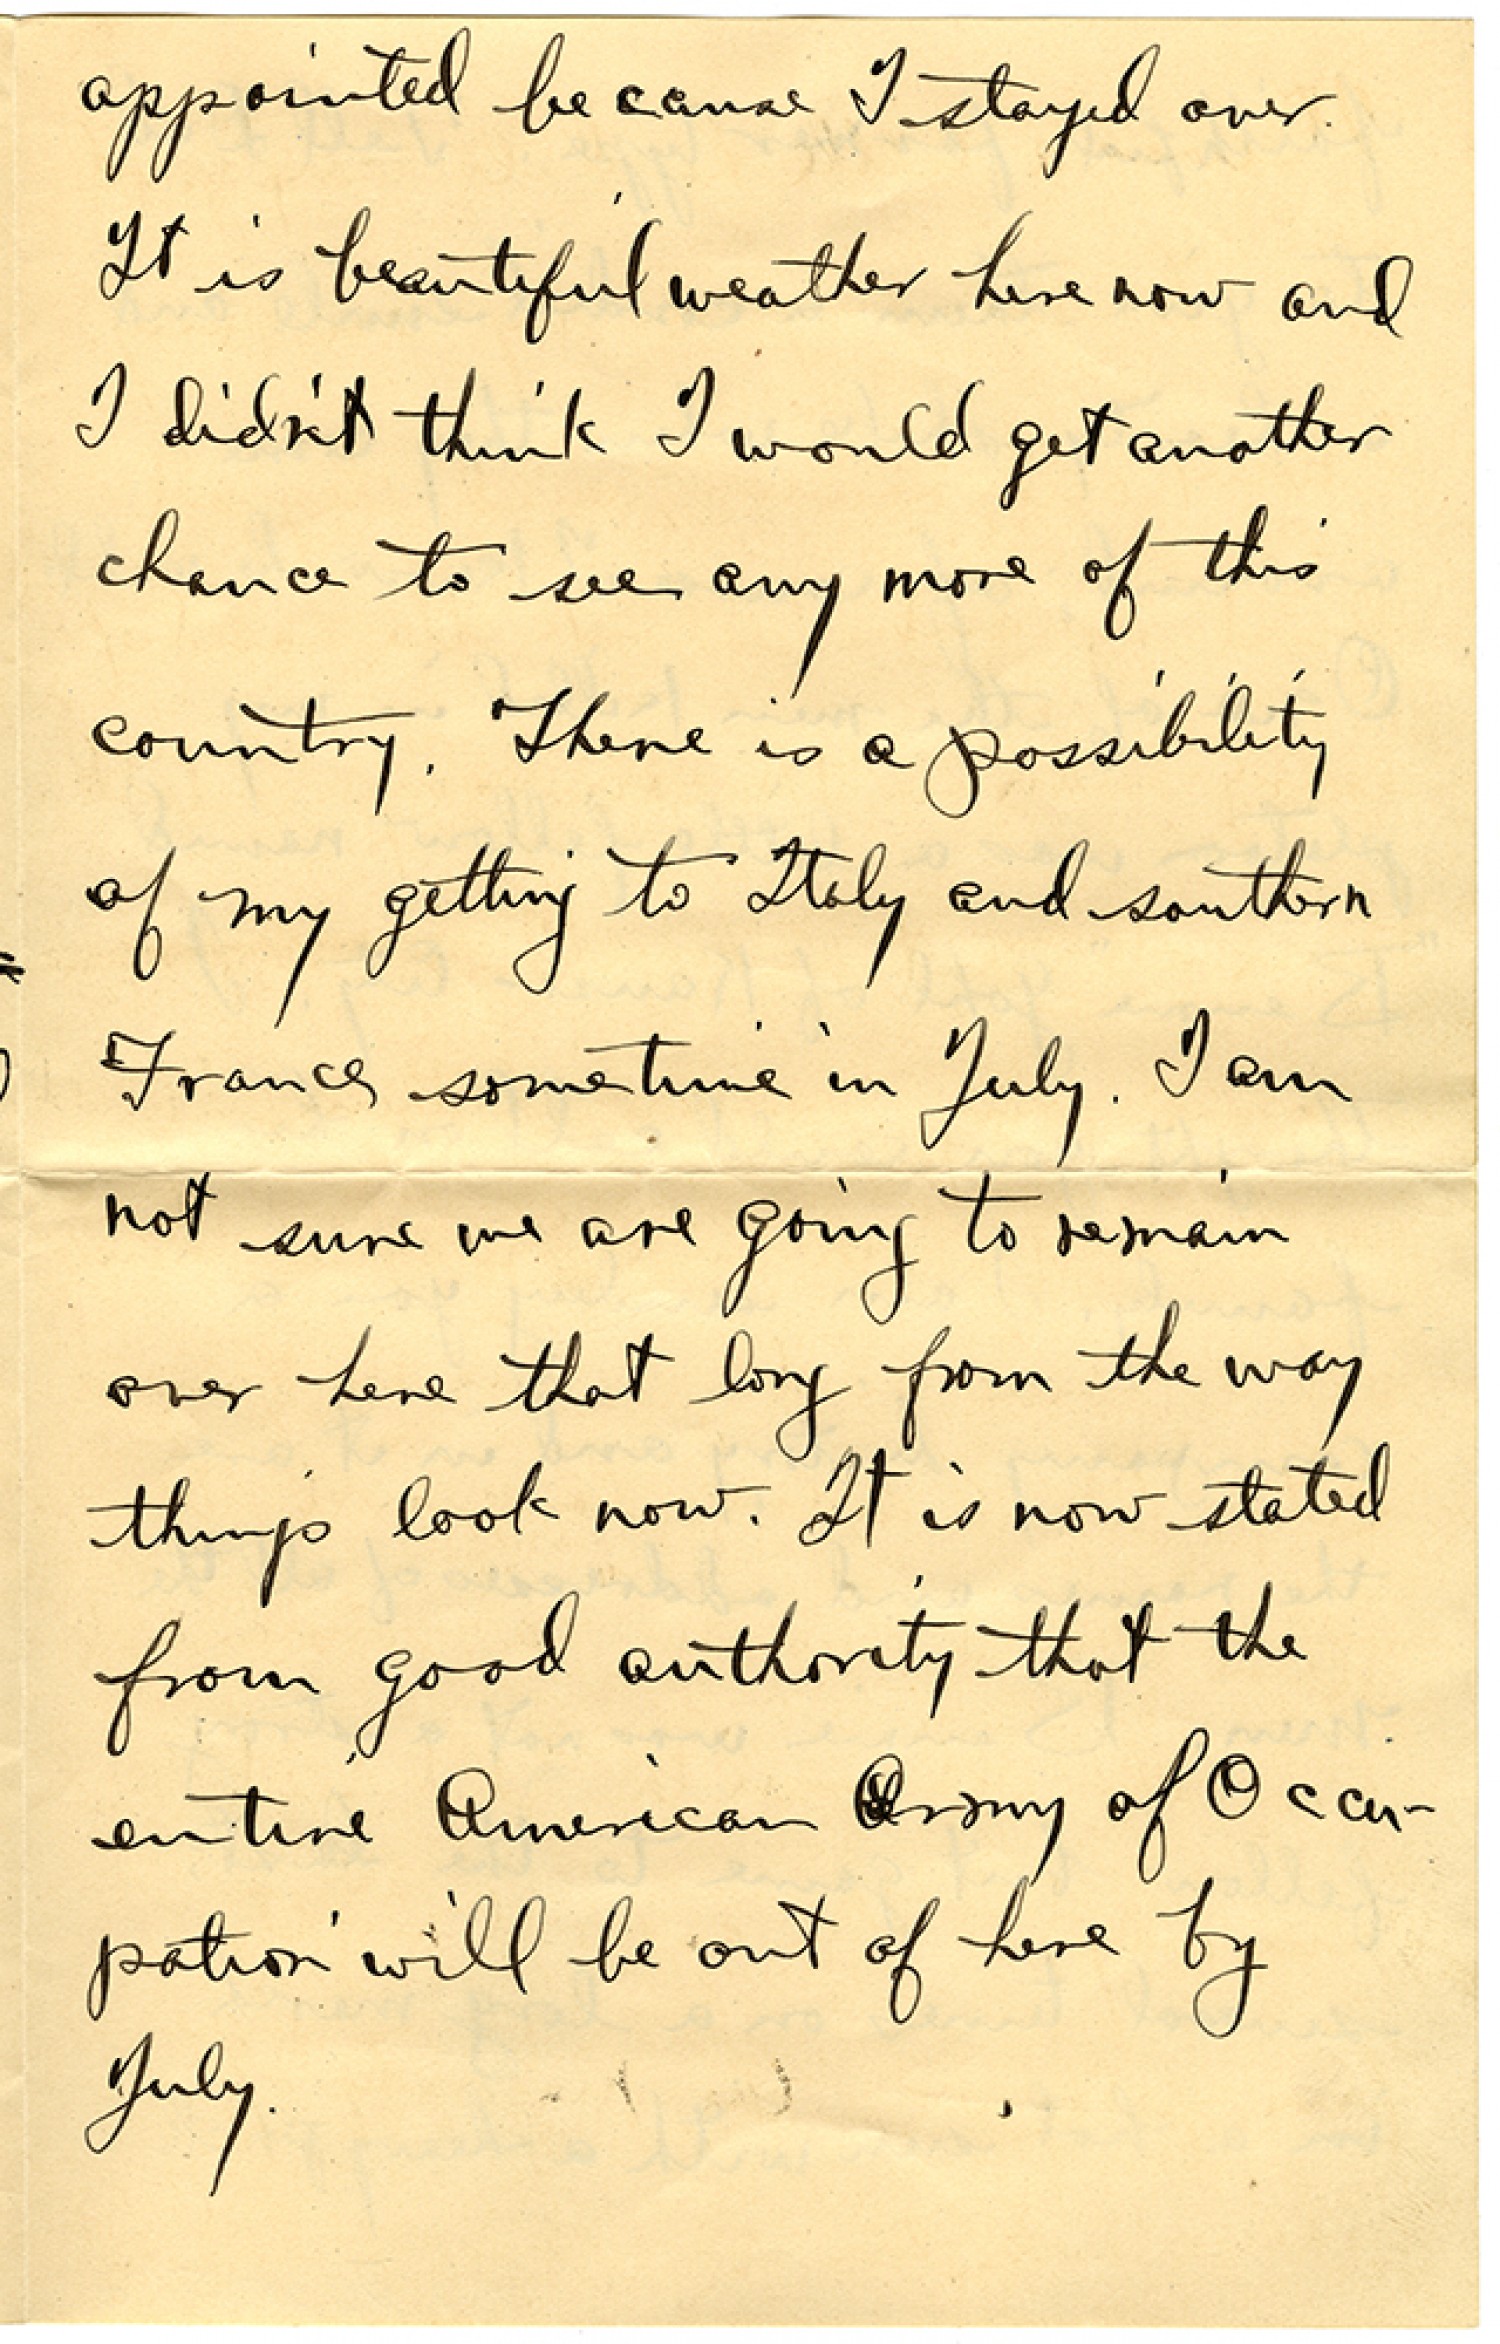 appointed because I stayed over.
It is beautiful weather here now and
I didn't think I would get another
chance to see any more of this
country. There is a possibility
of my getting to Italy and southern
France sometime in July. I am
not sure we are going to remain
over here that long from the way
things look now. It is now stated
from good authority that the
entire American Army of Occu-
pation will be out of here by
July.